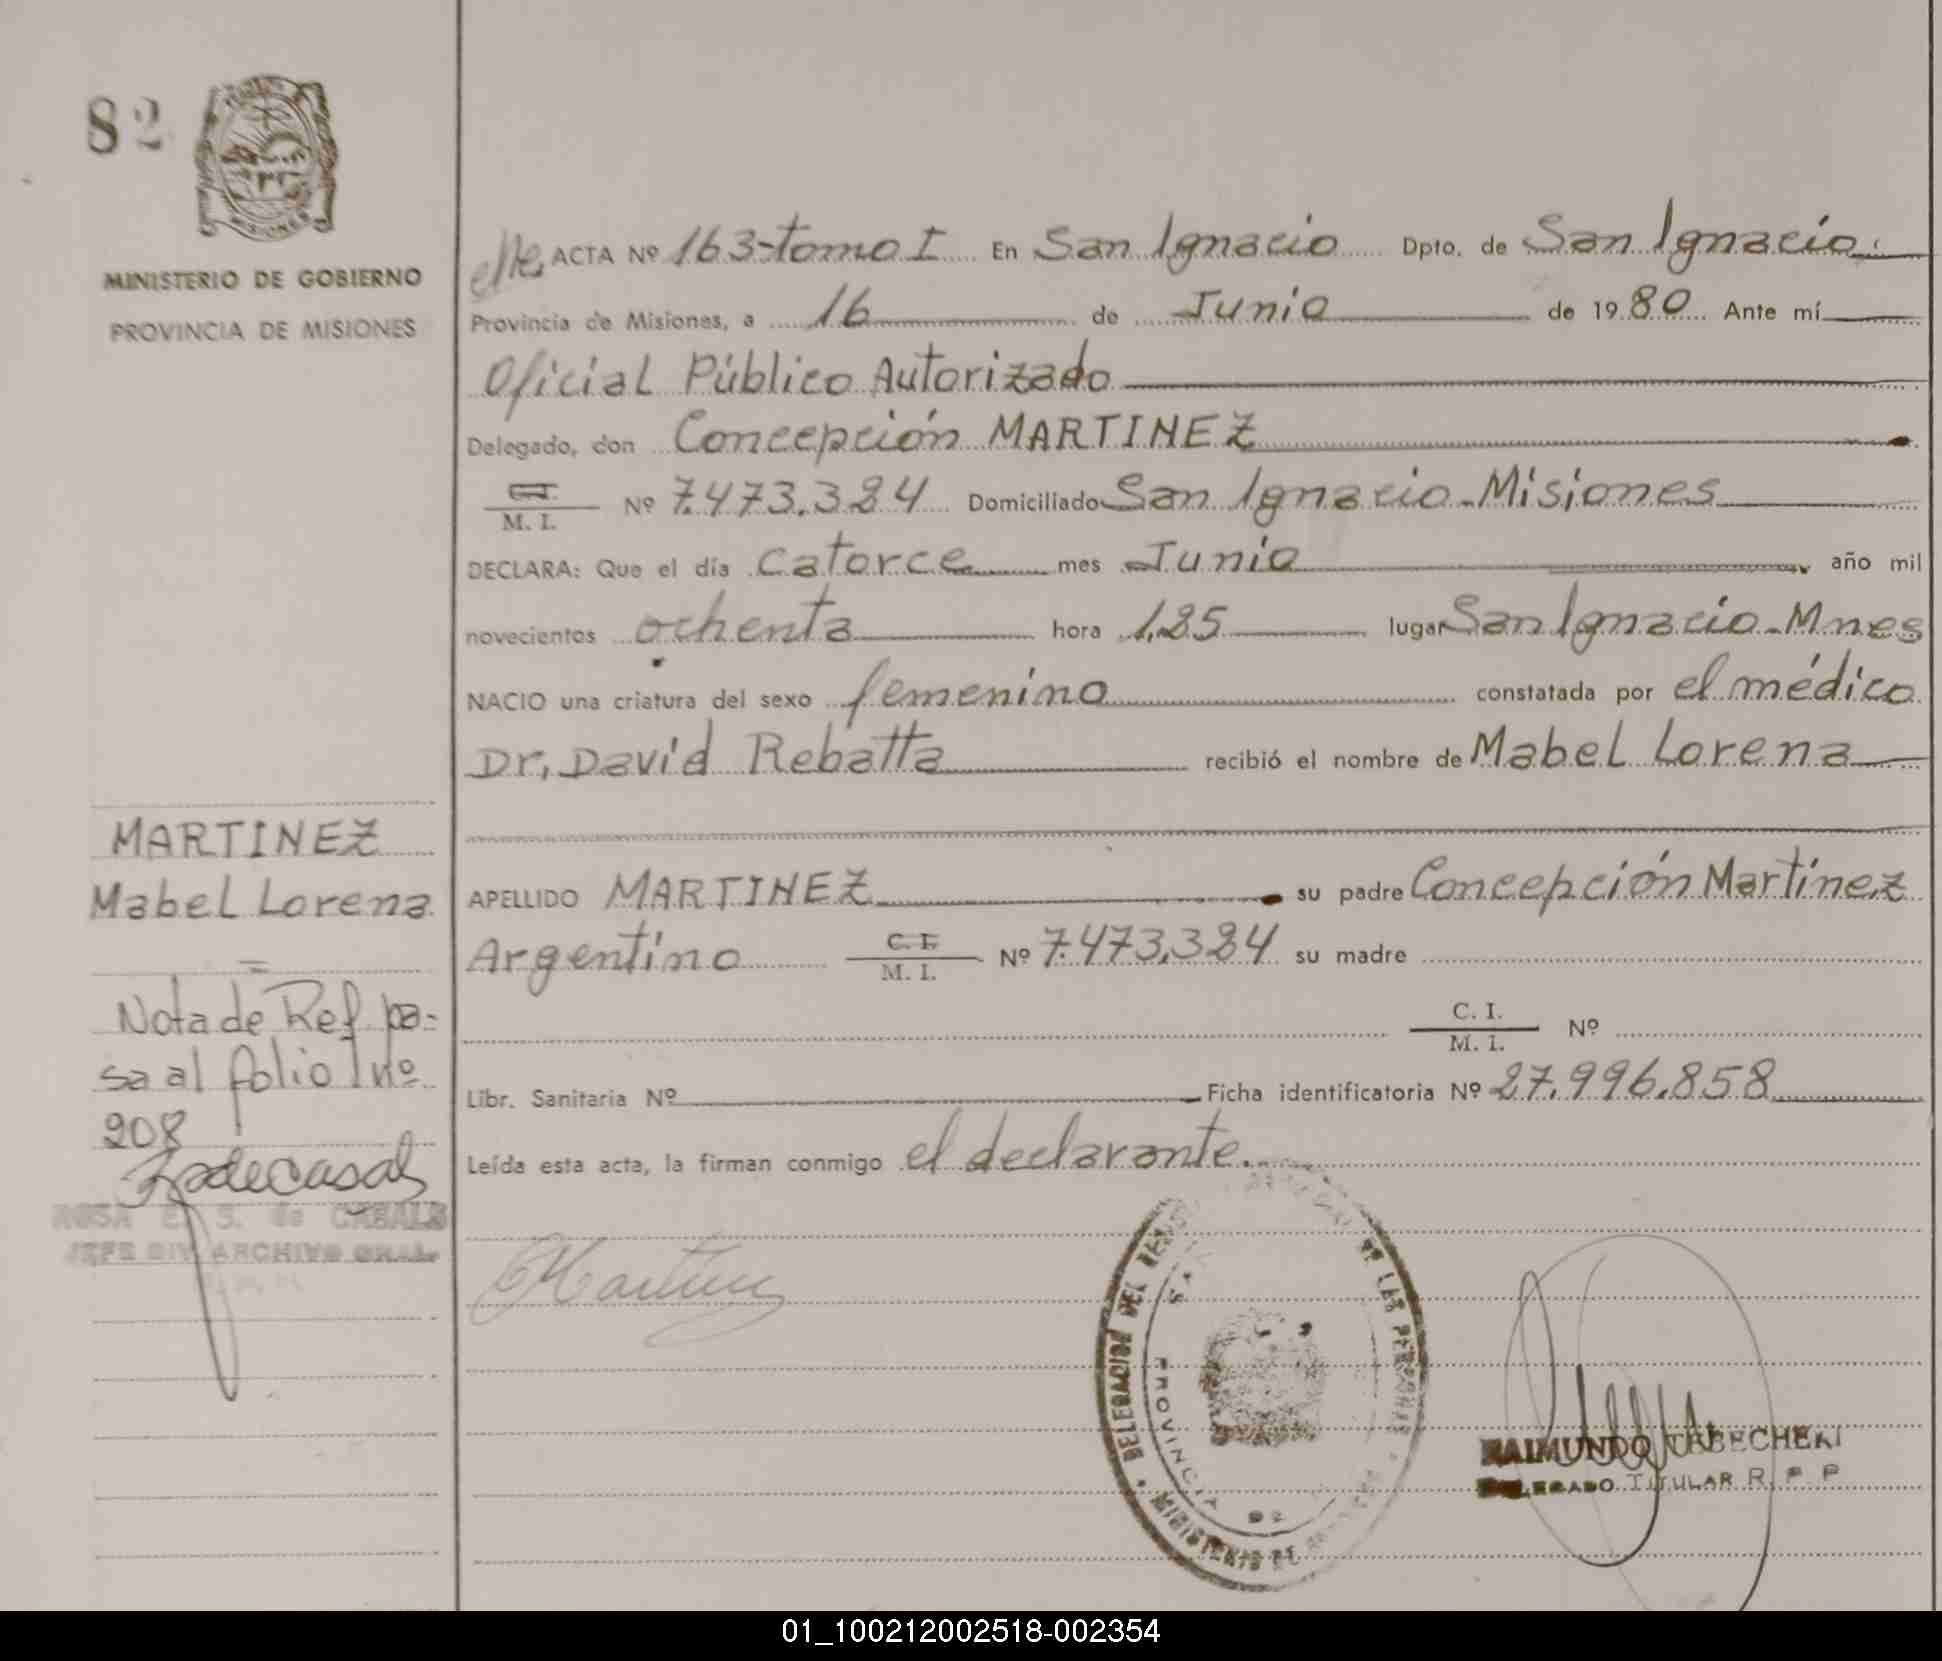 82
MINISTERIO DE GOBIERNO
PROVINCIA DE MISIONES
ACTA Nº 163-tomo I En San Ignacio Dpto. de San Ignacio
Provincia de Misiones, a 16 de Junio de 1980 Ante mí
Oficial Público Autorizado
Delegado, don Concepción MARTINEZ
C.I. M. I. Nº 7.473.324 Domiciliado San Ignacio-Misiones
DECLARA: Que el día catorce mes Junio año mil
novecientos ochenta hora 1,25 lugar San Ignacio-Mnes
NACIO una criatura del sexo femenino constatada por el médico
Dr. David Rebatta recibió el nombre de Mabel Lorena
APELLIDO MARTINEZ su padre Concepción Martínez
Argentino C. I. M. I. Nº 7.473.324 su madre
C. I. M. I. Nº
Libr. Sanitaria Nº Ficha identificatoria Nº 27.996.858
Leída esta acta, la firman conmigo el declarante.
MARTINEZ
Mabel Lorena
Nota de Ref. pa-
sa al folio Nº
208
ROSA E. S. de CASALS
JEFE DIV. ARCHIVO GRAL.
DELEGACION DEL
DE LAS PERSONAS
PROVINCIA DE
RAIMUNDO
DELEGADO TITULAR R. P. P
01_100212002518-002354